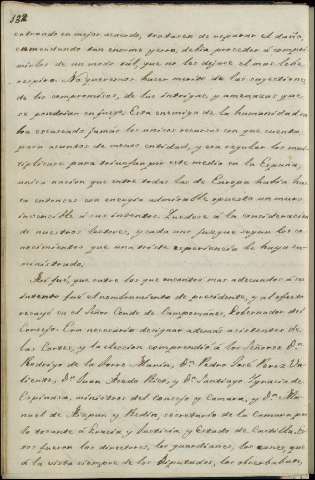 132
entrando en mejor acuerdo, tratasen de reparar el daño,
enmendando tan enorme yerro, debia proceder á compri-
mirlos de un modo tal, que no les dejase el mas lebe
respiro. No queremos hacer merito de las sugestiones
de los compromisos, de las intrigas, y amenazas que
se pondrian en juego. Esta enemiga de la humanidad no
ha escusado jamás los unicos recursos con que cuenta
para asuntos de menos entidad, y era regular los mul-
tiplicase para triunfar por este medio en la España,
unica nacion que entre todas las de Europa habia has-
ta entonces con energia admirable opuesto un muro
invencible á sus intentos. Quedese á la consideracion
de nuestros lectores, y cada uno juzgue segun los co-
nocimientos que una triste esperiencia le haya su-
ministrado.
Asi fué, que entre los que encontró mas adecuados á su
intento fué el nombramiento de presidente, y al efecto
recayó en el Señor Conde de Campomanes, Gobernador del
Consejo. Era necesario designar ademas asistentes de
las Cortes, y la eleccion comprendió á los Señores Dn.
Rodrigo de la Torre Marin, Dn. Pedro José Perez Va-
liente, Dn. Juan Acedo Rico, y Dn. Santiago Ignacio de
Espinosa, ministros del Consejo y Camara, y Dn. Ma-
nuel de Aizpun y Redin, secretario de la Camara por
lo tocante á Gracia y Justicia, y Estado de Castilla. Es-
tos fueron los directores, los guardianes, los que
á la vista siempre de los Diputados, los observaban,